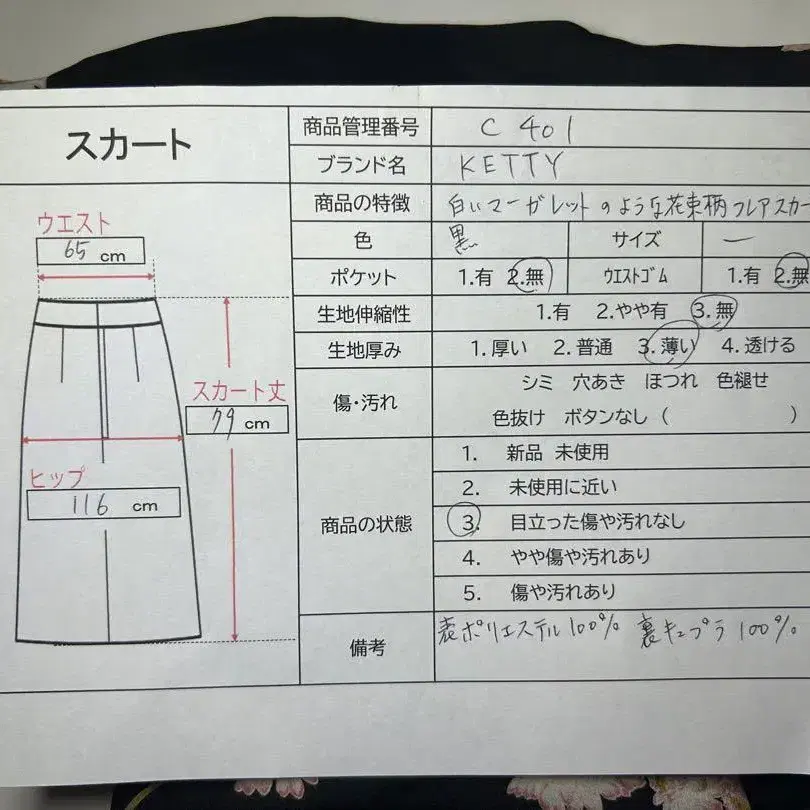 スカート
商品管理番号 C 401
ブランド名 KETTY
商品の特徴 白いマーガレットのような花束柄フレアスカー
色 黒 サイズ ー
ポケット 1.有 2.無 ウエストゴム 1.有 2.無
生地伸縮性 1.有 2.やや有 3.無
生地厚み 1.厚い 2.普通 3.薄い 4.透ける
傷・汚れ シミ 穴あき ほつれ 色褪せ
色抜け ボタンなし ( )
商品の状態
1. 新品 未使用
2. 未使用に近い
3. 目立った傷や汚れなし
4. やや傷や汚れあり
5. 傷や汚れあり
備考 表ポリエステル100% 裏キュプラ100%
ウエスト
65 cm
スカート丈
79 cm
ヒップ
116 cm